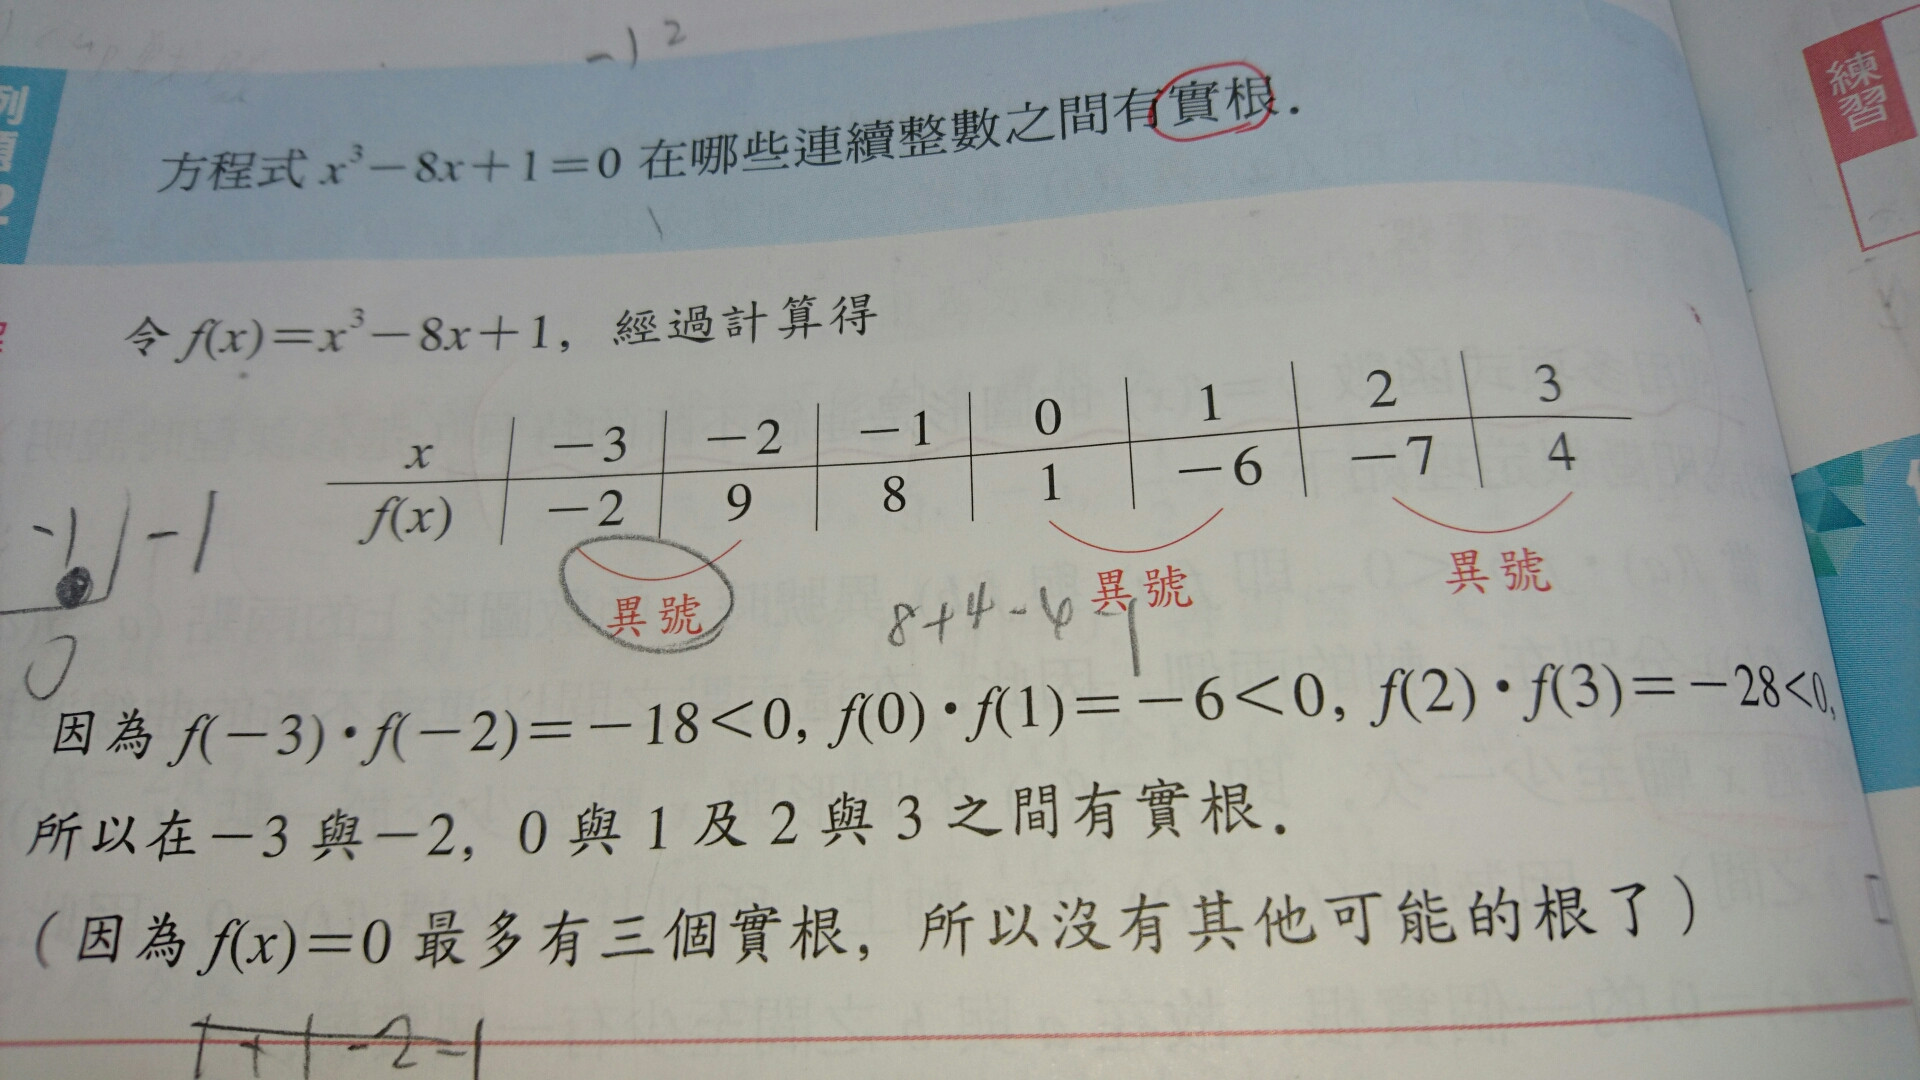 -1²
練習
方程式 x³-8x+1=0 在哪些連續整數之間有實根.
令 f(x)=x³-8x+1, 經過計算得
x -3 -2 -1 0 1 2 3
f(x) -2 9 8 1 -6 -7 4
異號 異號 異號
-1
-1
0
8+4-6-1
因為 f(-3)·f(-2)=-18<0, f(0)·f(1)=-6<0, f(2)·f(3)=-28<0,
所以在-3與-2, 0與1及2與3之間有實根.
(因為 f(x)=0 最多有三個實根, 所以沒有其他可能的根了)
1+1-2-1